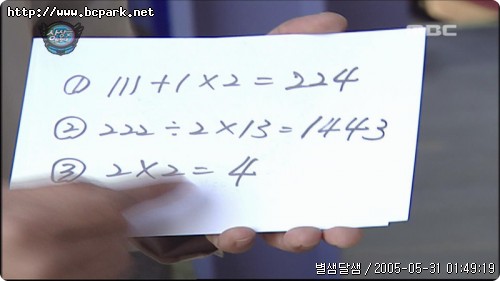 http://www.bcpark.net
MBC
① 111 + 1 × 2 = 224
② 222 ÷ 2 × 13 = 1443
③ 2 × 2 = 4
별샘달샘 / 2005-05-31 01:49:19